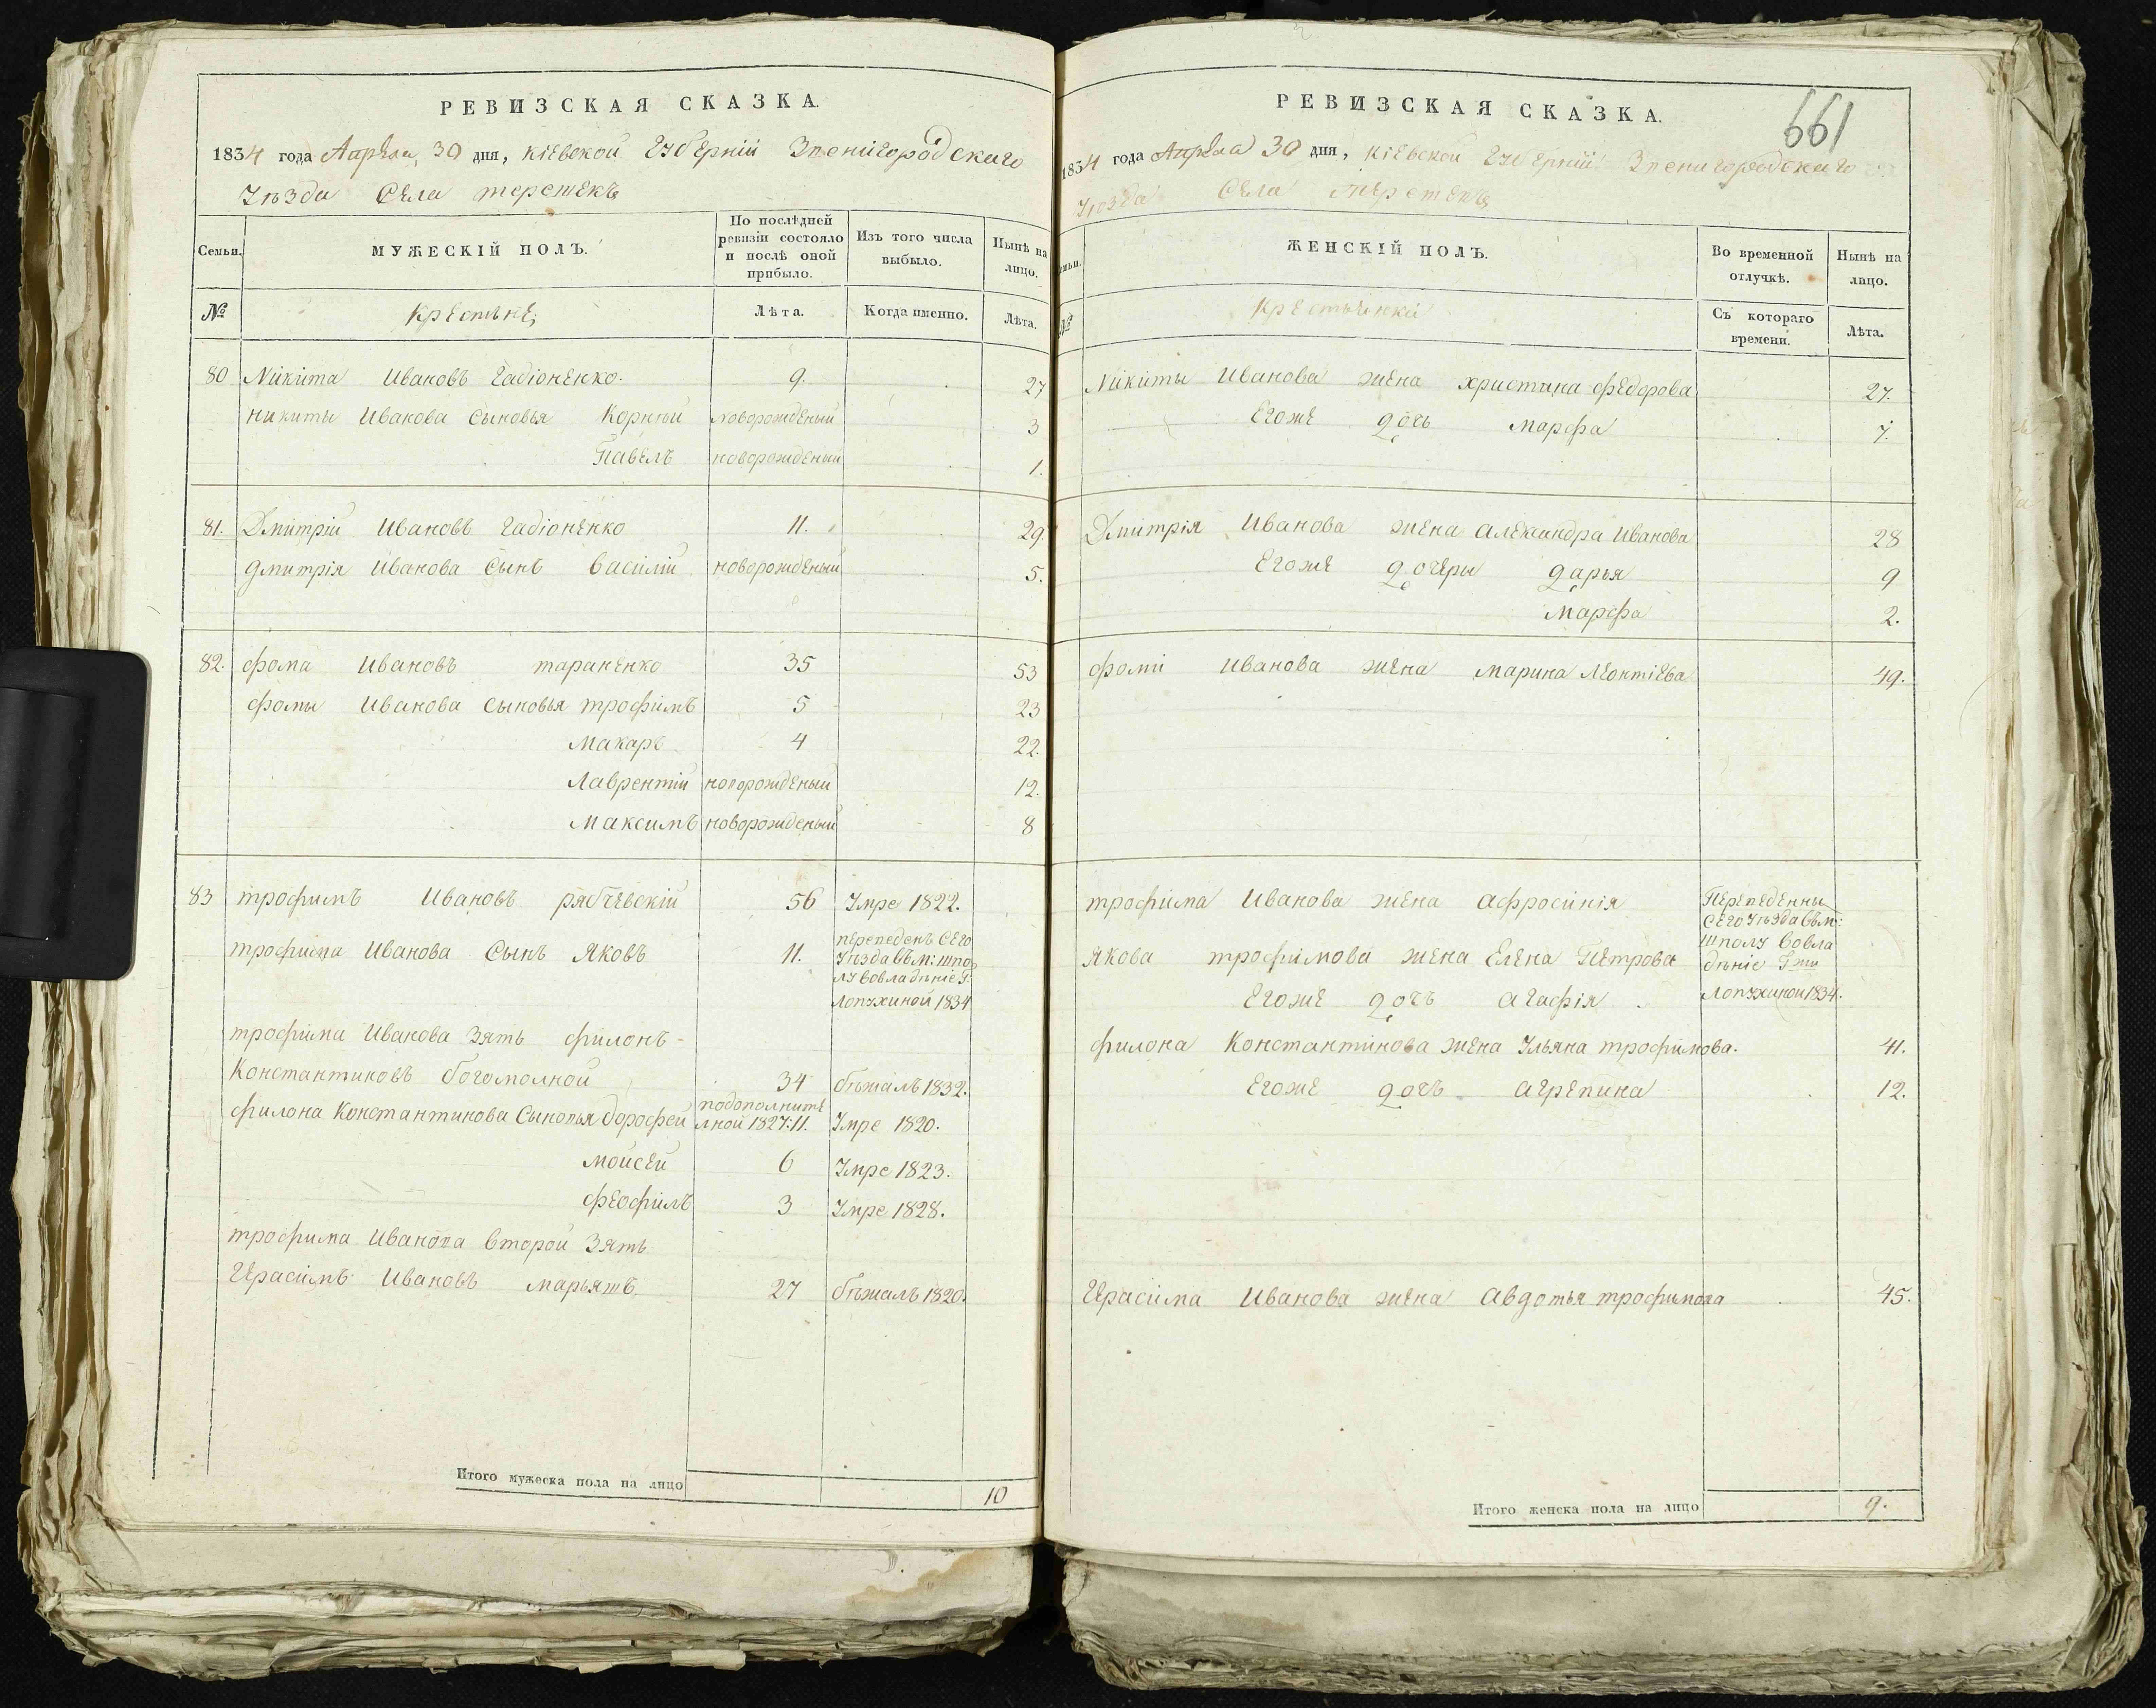 РЕВИЗСКАЯ СКАЗКА.
1834 года Апреля 30 дня, Кіевской Губерніи Звенигородскаго
Уѣзда Села терешекъ
Семьи.
МУЖЕСКІЙ ПОЛЪ.
По послѣдней ревизіи состояло и послѣ оной прибыло.
Изъ того числа выбыло.
Нынѣ на лицо.
№
Крестьяне
Лѣта.
Когда именно.
Лѣта.
80 Никита Ивановъ Гадіоненко. 9. 27
никиты Иванова Сыновья Корнѣй новорожденый 3
Павелъ новорожденый 1.
81. Дмитрій Ивановъ Гадіоненко 11. 29
дмитрія Иванова Сынъ Василій новорожденый 5.
82. фома Ивановъ тараненко 35 53
фомы Иванова Сыновья трофимъ 5 23
Макаръ 4 22.
Лаврентій новорожденый 12.
Максимъ новорожденый 8
83 трофимъ Ивановъ рябчевскій 56 Умре 1822.
трофима Иванова Сынъ Яковъ 11. переведенъ Сего
Уѣзда въ м: шпо
лу вовладѣніе Г:
Лопухиной 1834
трофима Иванова Зять филонъ-
Константиновъ богомолной 34 бѣжалъ 1832.
филона Константинова Сыновья дорофей подополните
лной 1827: 11. Умре 1820.
моисей 6 Умре 1823.
феофилъ 3 Умре 1828.
трофима Иванова второй Зять
Герасимъ Ивановъ марьяшъ 27 бѣжалъ 1820.
Итого мужеска пола на лицо 10
РЕВИЗСКАЯ СКАЗКА.
661
1834 года Апреля 30 дня, Кіевской Губерніи Звенигородскаго
Уѣзда Села терешекъ
ЖЕНСКІЙ ПОЛЪ.
Во временной отлучкѣ.
Нынѣ на лицо.
№
Крестьянки
Съ котораго времени.
Лѣта.
Никиты Иванова жена христина федорова 27.
Егоже дочь марфа 7.
Дмитрія Иванова жена Александра Иванова 28
Егоже дочери дарья 9
марфа 2.
фоми Иванова жена марина Леонтіева 49.
трофима Иванова жена Афросинія Переведенны
Сего Уѣзда въ м:
Якова трофимова жена Елена Петрова шполу вовла
дѣніе Гжи
Егоже дочь агафія Лопухиной 1834.
филона Константинова жена Ульяна трофимова. 41.
Егоже дочь агрепина 12.
Герасима Иванова жена авдотья трофимова 45.
Итого женска пола на лицо 9.